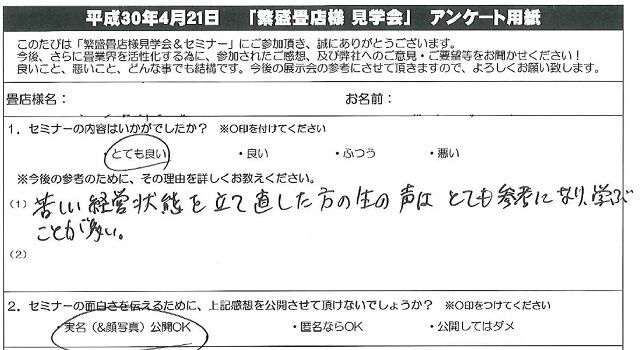 平成30年4月21日 「繁盛畳店様 見学会」 アンケート用紙
このたびは「繁盛畳店様見学会&セミナー」にご参加頂き、誠にありがとうございます。
今後、さらに畳業界を活性化する為に、参加されたご感想、及び弊社へのご意見・ご要望等をお聞かせください！
良いこと、悪いこと、どんな事でも結構です。今後の展示会の参考にさせて頂きますので、よろしくお願い致します。
畳店様名： お名前：
1．セミナーの内容はいかがでしたか？ ※○印を付けてください
・とても良い ・良い ・ふつう ・悪い
※今後の参考のために、その理由を詳しくお教えください。
(1) 苦しい経営状態を立て直した方の生の声は とても参考になり、学ぶ
ことが多い。
(2)
2．セミナーの面白さを伝えるために、上記感想を公開させて頂けないでしょうか？ ※○印をつけてください
・実名（&顔写真）公開OK ・匿名ならOK ・公開してはダメ